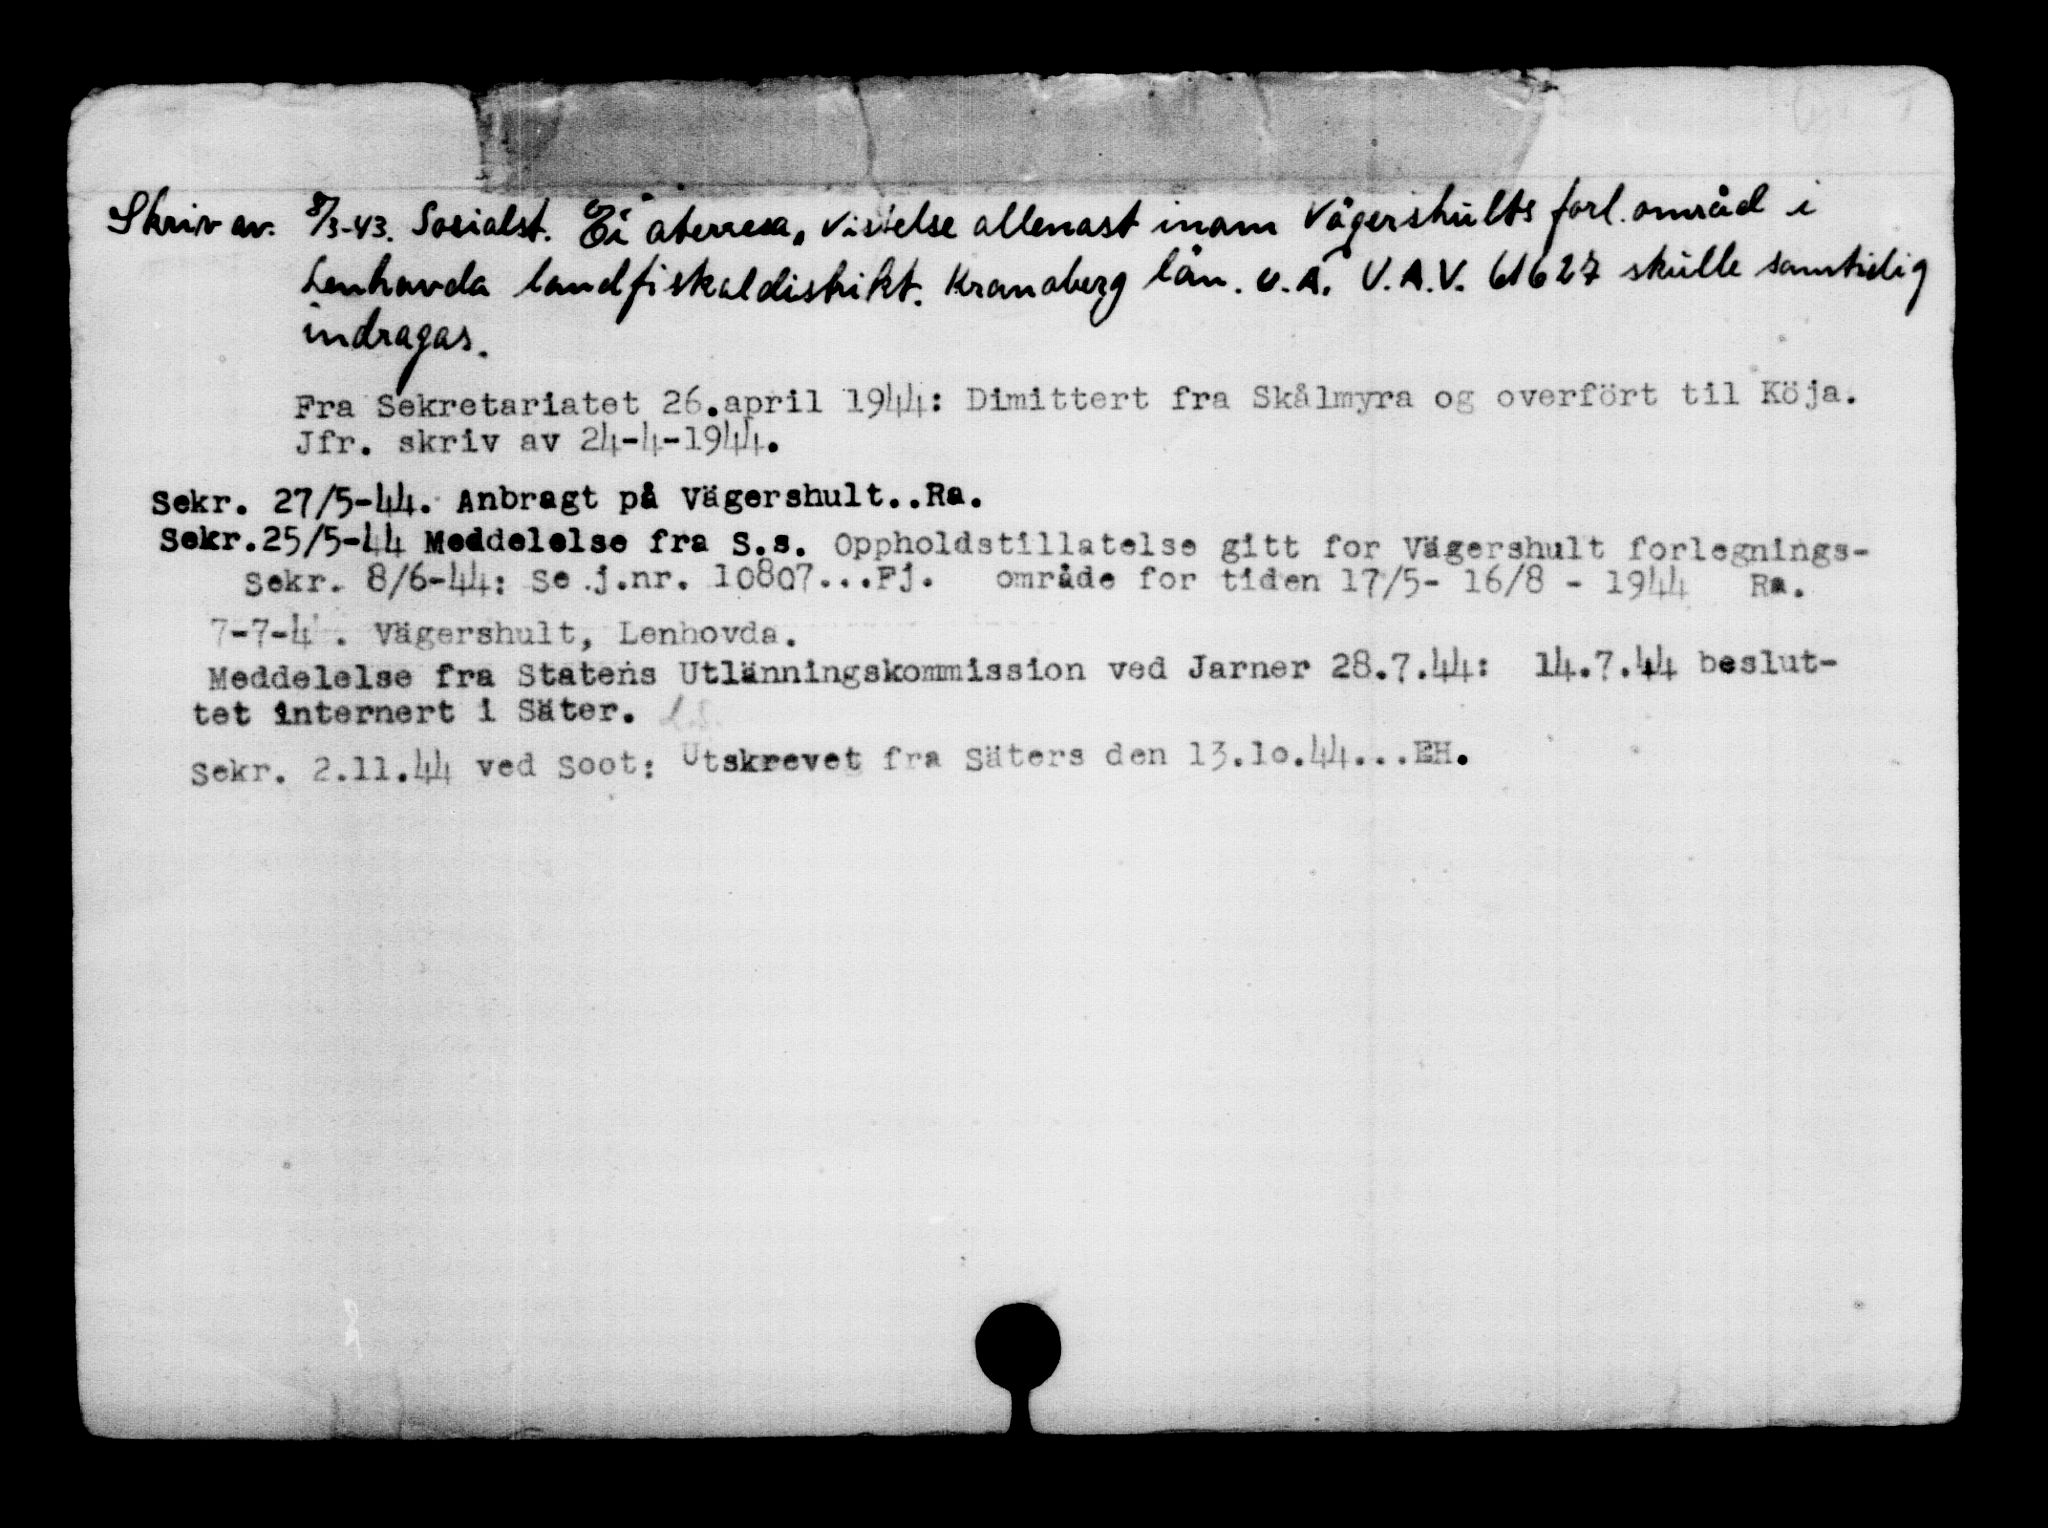 Skriv av. 8/3-43. Sosialst. Ei återresa, vistelse allenast inom Vägershults forl.områd i
Lenhovda landfiskaldistrikt. Kronoberg län. U.A. U.A.V. 61627 skulle samtidig
indragas.
Fra Sekretariatet 26.april 1944: Dimittert fra Skålmyra og overfört til Köja.
Jfr. skriv av 24-4-1944.
Sekr. 27/5-44. Anbragt på Vägershult..Ra.
Sekr.25/5-44 Meddelelse fra S.s. Oppholdstillatelse gitt for Vägershult forlegnings-
Sekr. 8/6-44: Se j.nr. 10807...Fj. område for tiden 17/5- 16/8 - 1944 Ra.
7-7-4 . Vägershult, Lenhovda.
Meddelelse fra Statens Utlänningskommission ved Jarner 28.7.44: 14.7.44 beslut-
tet internert i Säter.
Sekr. 2.11.44 ved Soot: Utskrevet fra Säters den 13.10.44...EH.